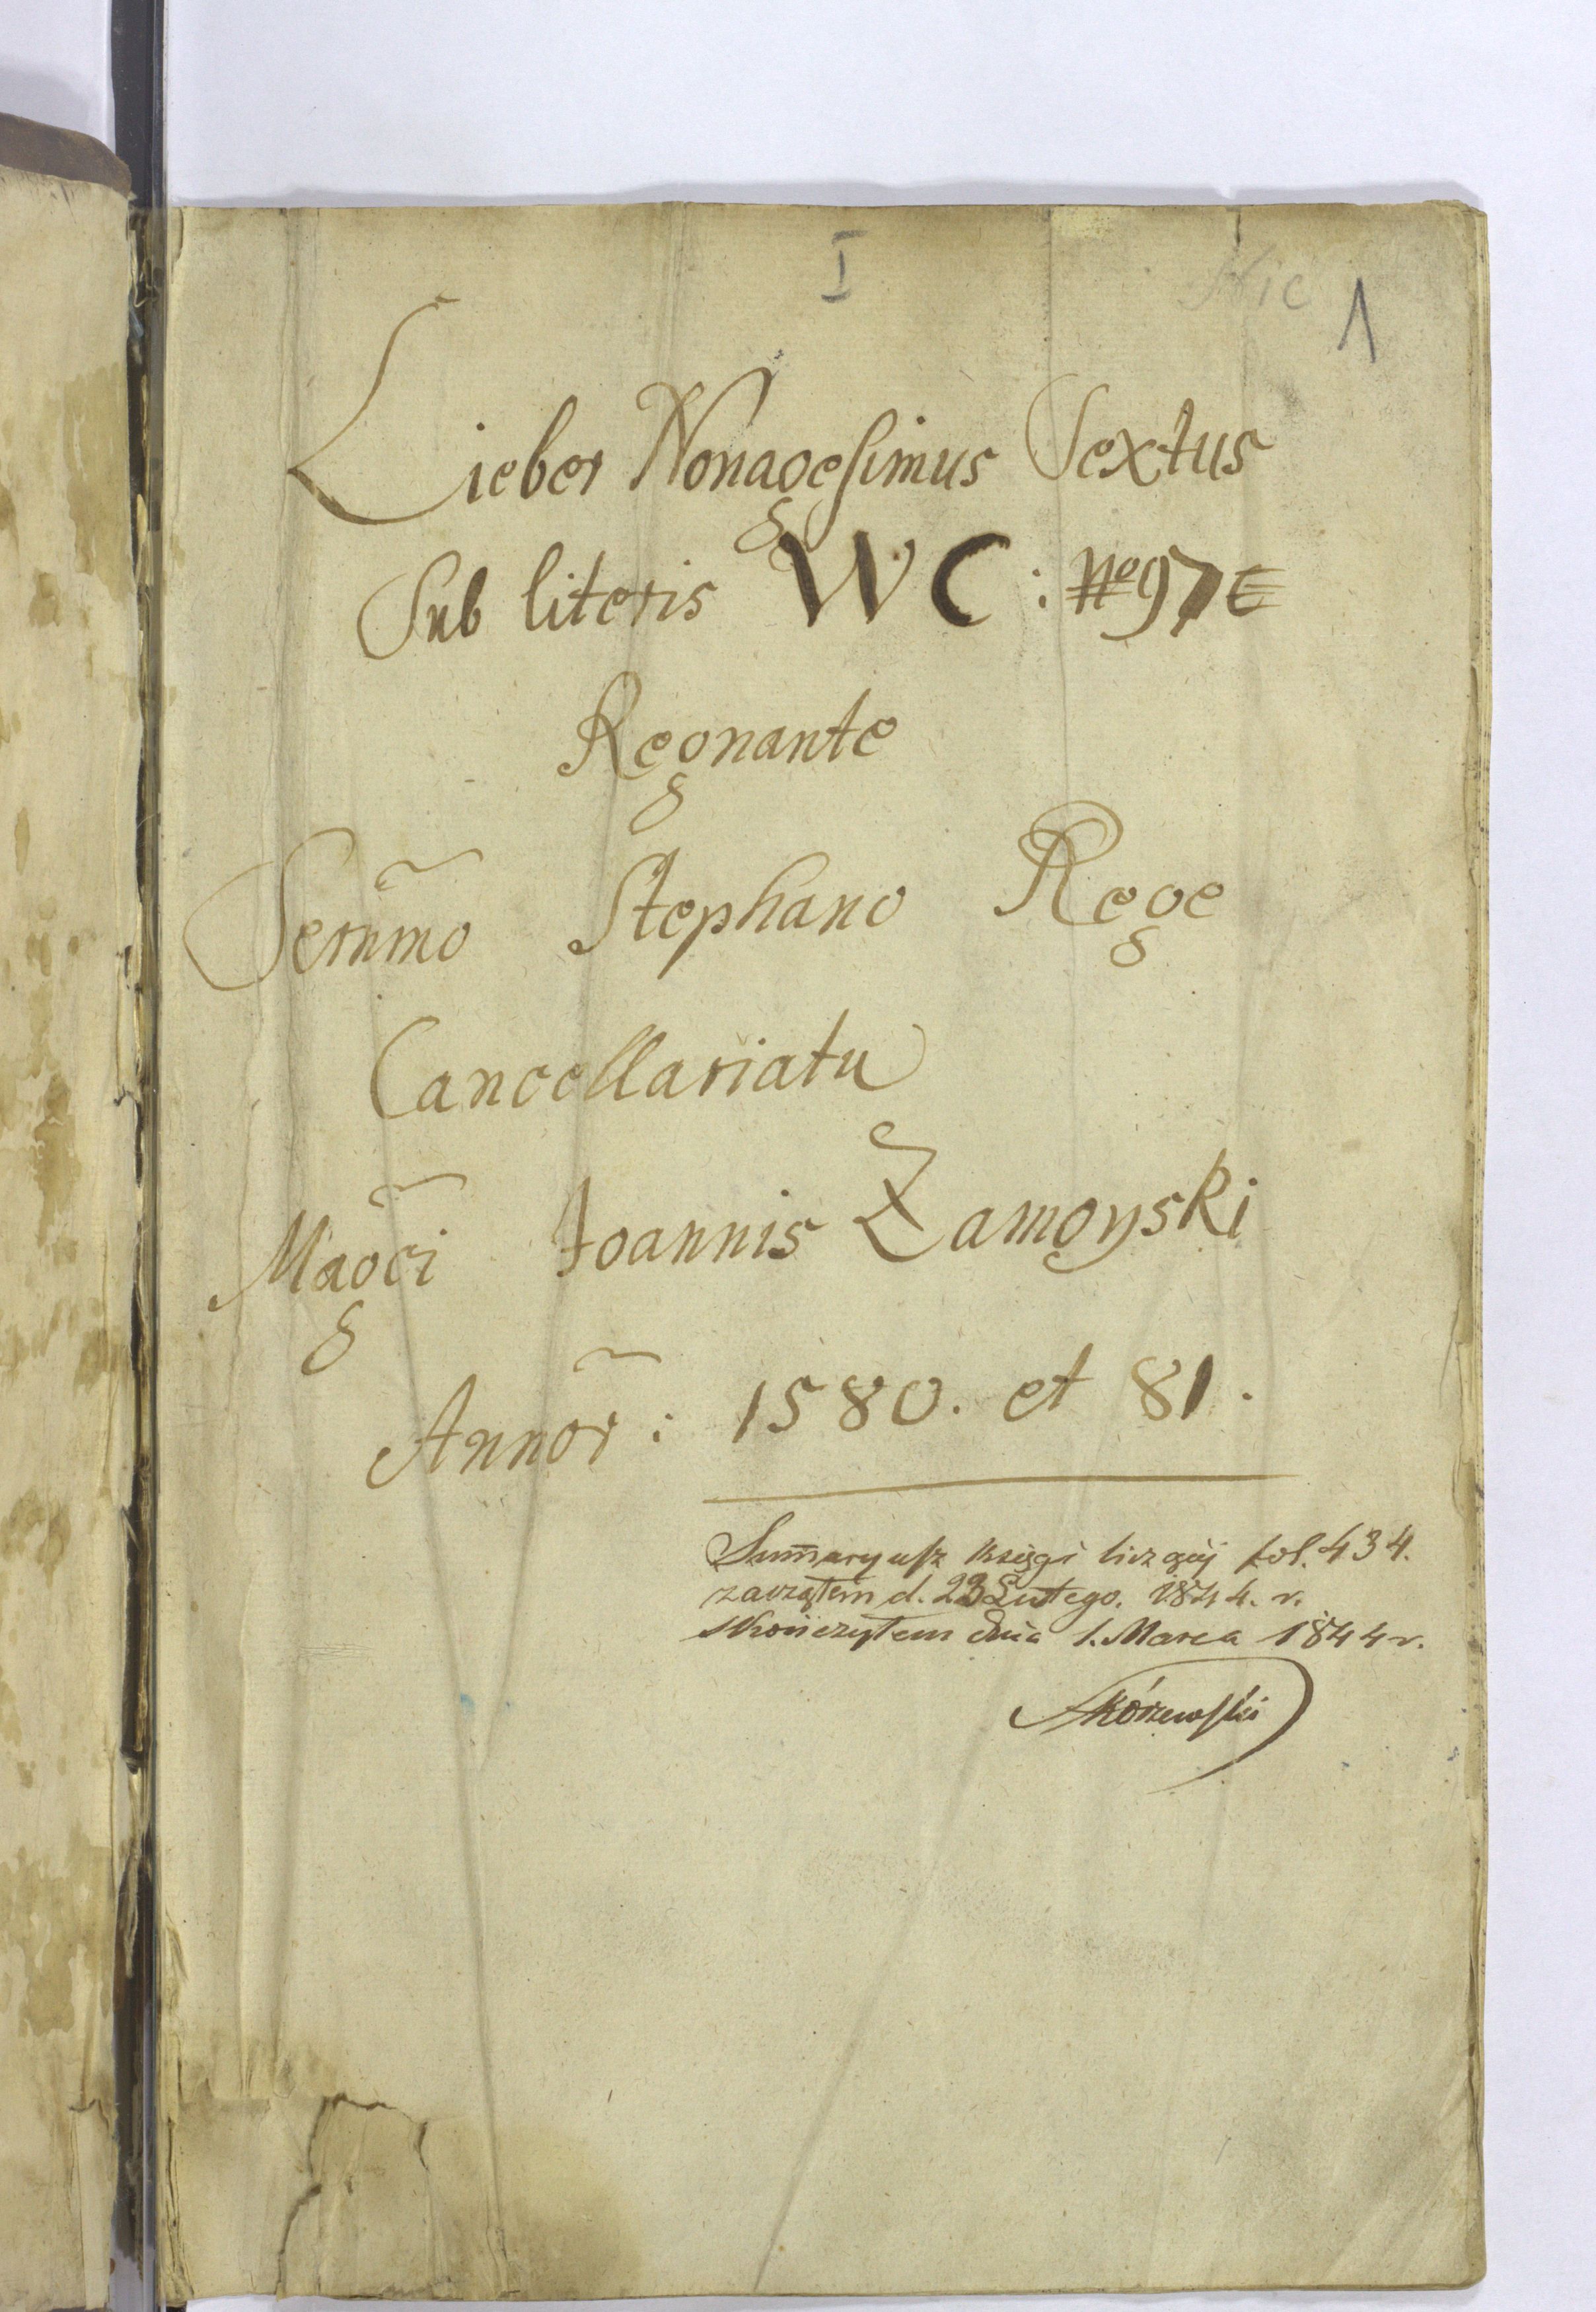 I
1
Lieber Nonagesimus Sextus
Sub literis WC: No 97
Regnante
Serñmo Stephano Rege
Cancellariatu
Magc̃i Joannis Zamoyski
Annor̃: 1580. et 81.
Sum̃aryusz księgi liczącéj fol. 434.
zacząłem d. 23 Lutego. 1844. r.
skończyłem dnia 1. Marca 1844 r.
Skórzewski